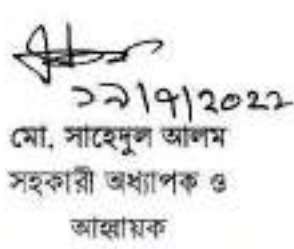 ১৯|৭|2022
মো. সাহেদুল আলম
সহকারী অধ্যাপক ও
আহ্বায়ক